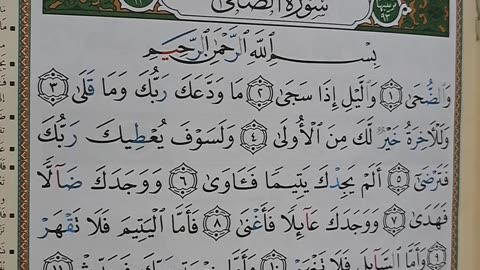 سُورَةُ الضُّحَى
بِسْمِ ٱللَّهِ ٱلرَّحْمَٰنِ ٱلرَّحِيمِ
وَٱلضُّحَىٰ ١ وَٱلَّيْلِ إِذَا سَجَىٰ ٢ مَا وَدَّعَكَ رَبُّكَ وَمَا قَلَىٰ ٣
وَلَلْـَٔاخِرَةُ خَيْرٌ لَّكَ مِنَ ٱلْأُولَىٰ ٤ وَلَسَوْفَ يُعْطِيكَ رَبُّكَ
فَتَرْضَىٰٓ ٥ أَلَمْ يَجِدْكَ يَتِيمًا فَـَٔاوَىٰ ٦ وَوَجَدَكَ ضَآلًّا
فَهَدَىٰ ٧ وَوَجَدَكَ عَآئِلًا فَأَغْنَىٰ ٨ فَأَمَّا ٱلْيَتِيمَ فَلَا تَقْهَرْ
٩ وَأَمَّا ٱلسَّآئِلَ فَلَا تَنْهَرْ ١٠ وَأَمَّا بِنِعْمَةِ رَبِّكَ فَحَدِّثْ ١١